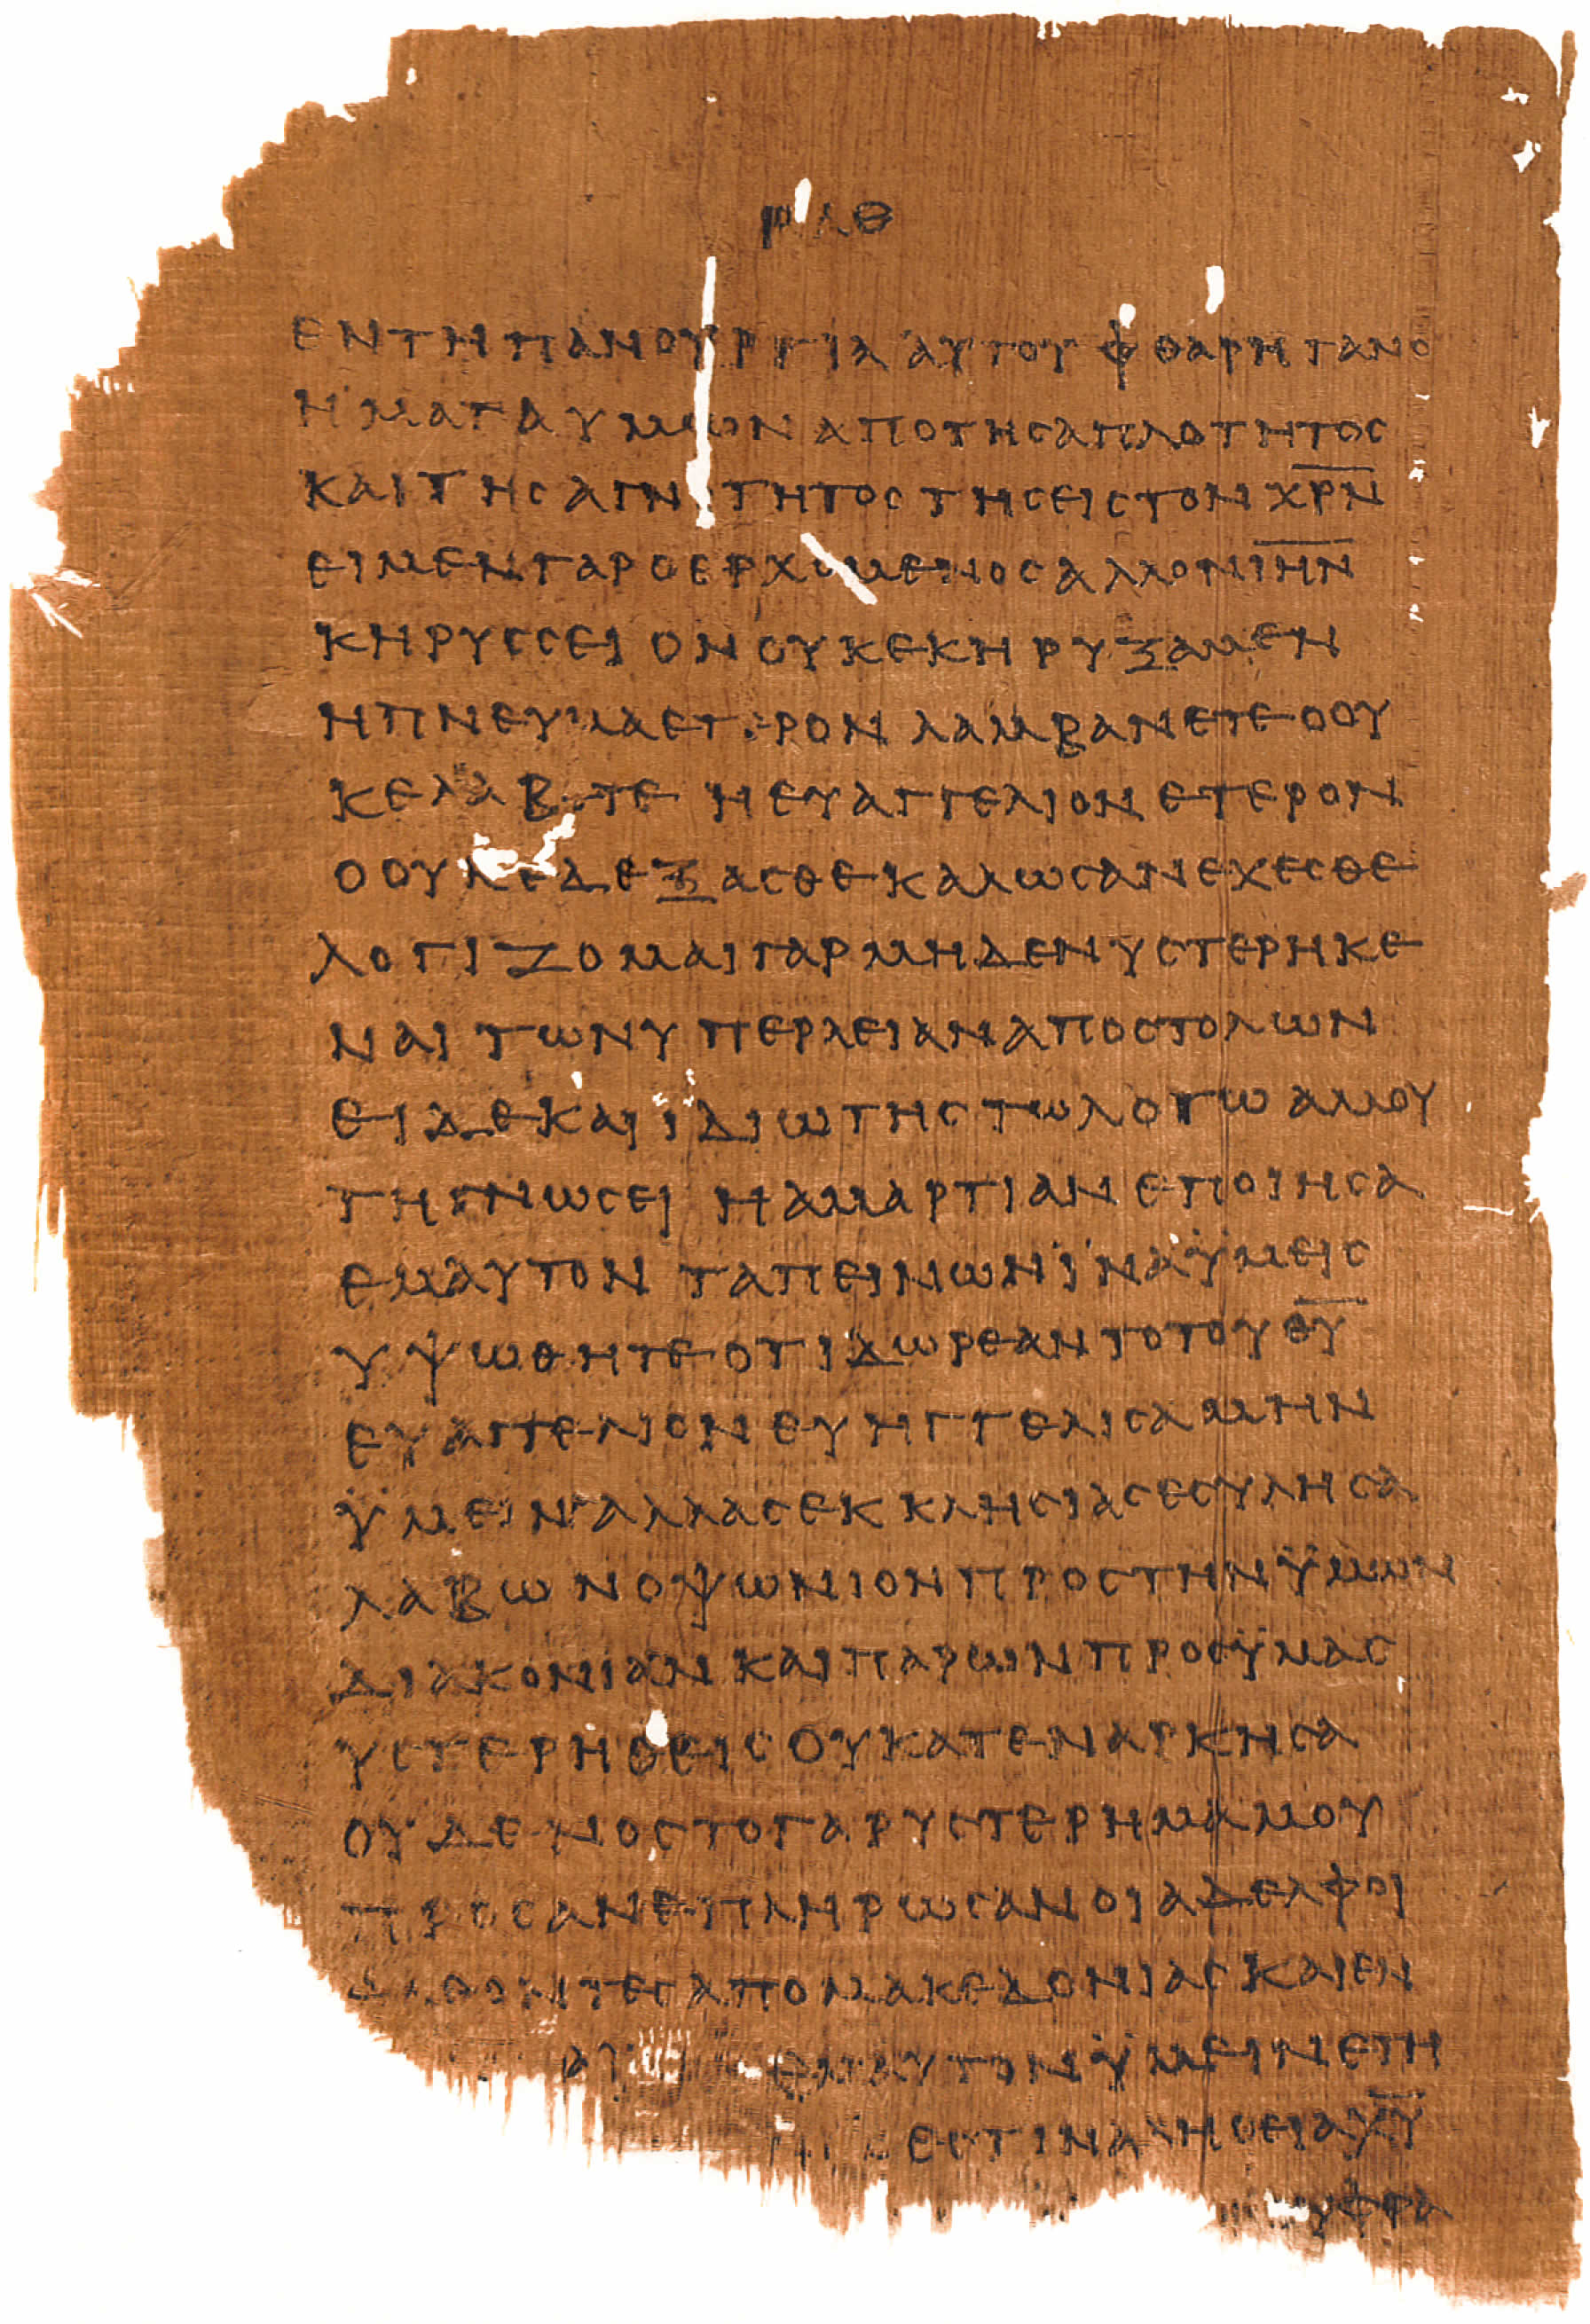 ΡΛΘ
ΕΝΤΗΠΑΝΟΥΡΓΙΑΑΥΤΟΥΦΘΑΡΗΤΑΝΟ
ΗΜΑΤΑΥΜΩΝΑΠΟΤΗΣΑΠΛΟΤΗΤΟΣ
ΚΑΙΤΗΣΑΓΝΟΤΗΤΟΣΤΗΣΕΙΣΤΟΝΧ̅Ρ̅Ν̅
ΕΙΜΕΝΓΑΡΟΕΡΧΟΜΕΝΟΣΑΛΛΟΝΙ̅Η̅Ν̅
ΚΗΡΥΣΣΕΙΟΝΟΥΚΕΚΗΡΥΞΑΜΕΝ
ΗΠΝΕΥΜΑΕΤΕΡΟΝΛΑΜΒΑΝΕΤΕΟΟΥ
ΚΕΛΑΒΕΤΕΗΕΥΑΓΓΕΛΙΟΝΕΤΕΡΟΝ
ΟΟΥΚΕΔΕΞΑΣΘΕΚΑΛΩΣΑΝΕΧΕΣΘΕ
ΛΟΓΙΖΟΜΑΙΓΑΡΜΗΔΕΝΥΣΤΕΡΗΚΕ
ΝΑΙΤΩΝΥΠΕΡΛΕΙΑΝΑΠΟΣΤΟΛΩΝ
ΕΙΔΕΚΑΙΙΔΙΩΤΗΣΤΩΛΟΓΩΑΛΛΟΥ
ΤΗΓΝΩΣΕΙΗΑΜΑΡΤΙΑΝΕΠΟΙΗΣΑ
ΕΜΑΥΤΟΝΤΑΠΕΙΝΩΝΪΝΑΫΜΕΙΣ
ΥΨΩΘΗΤΕΟΤΙΔΩΡΕΑΝΤΟΤΟΥΘ̅Υ̅
ΕΥΑΓΓΕΛΙΟΝΕΥΗΓΓΕΛΙΣΑΜΗΝ
ΫΜΕΙΝΑΛΛΑΣΕΚΚΛΗΣΙΑΣΕΣΥΛΗΣΑ
ΛΑΒΩΝΟΨΩΝΙΟΝΠΡΟΣΤΗΝΫΜΩΝ
ΔΙΑΚΟΝΙΑΝΚΑΙΠΑΡΩΝΠΡΟΣΫΜΑΣ
ΥΣΤΕΡΗΘΕΙΣΟΥΚΑΤΕΝΑΡΚΗΣΑ
ΟΥΔΕΝΟΣΤΟΓΑΡΥΣΤΕΡΗΜΑΜΟΥ
ΠΡΟΣΑΝΕΠΛΗΡΩΣΑΝΟΙΑΔΕΛΦΟΙ
ΕΛΘΟΝΤΕΣΑΠΟΜΑΚΕΔΟΝΙΑΣΚΑΙΕΝ
ΕΜΑΥΤΟΝΫΜΕΙΝΕΤΗ
ΕΣΤΙΝΑΛΗΘΕΙΑΧ̅Υ̅
ΥΦΡΑ